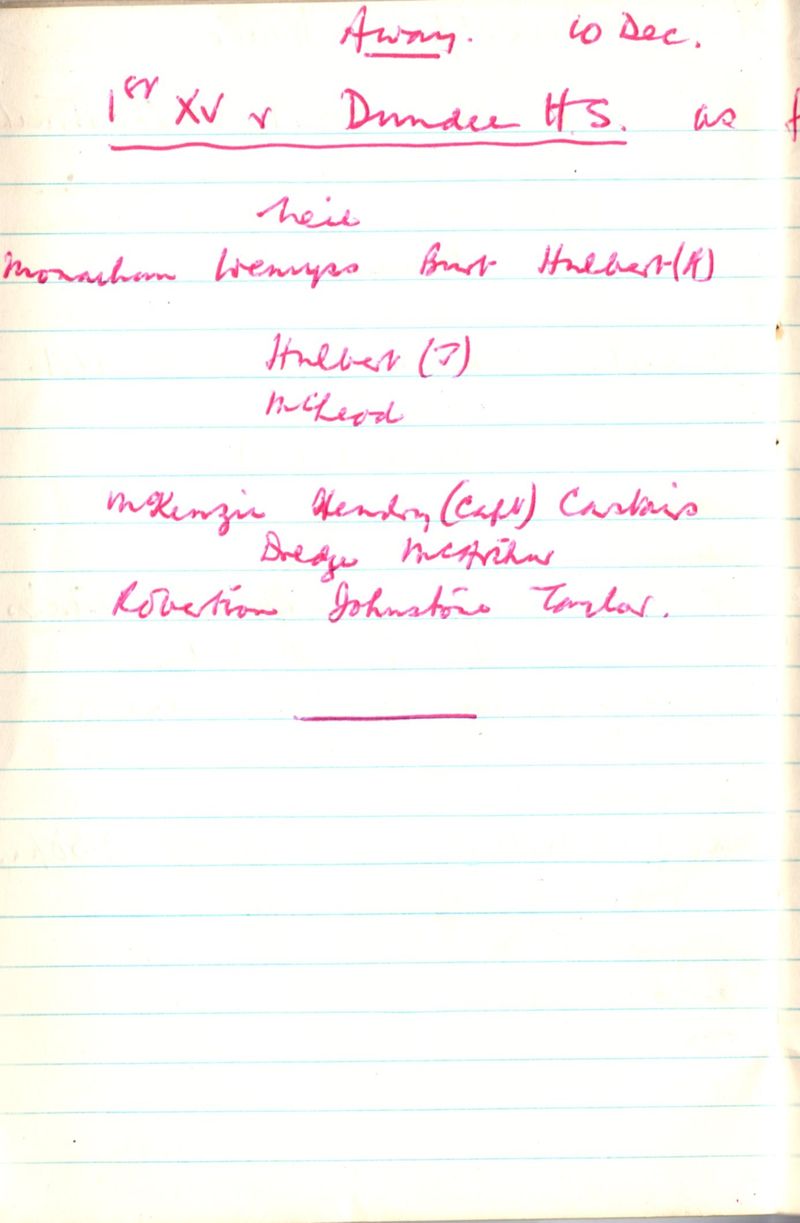 Away. 10 Dec.
1st XV v Dundee H S. as f
Neil
Monachan Wemyss Burt Hulbert (K)
Hulbert (J)
McLeod
McKenzie Hendry (Capt) Carstairs
Dredge McArthur
Robertson Johnstone Taylor.